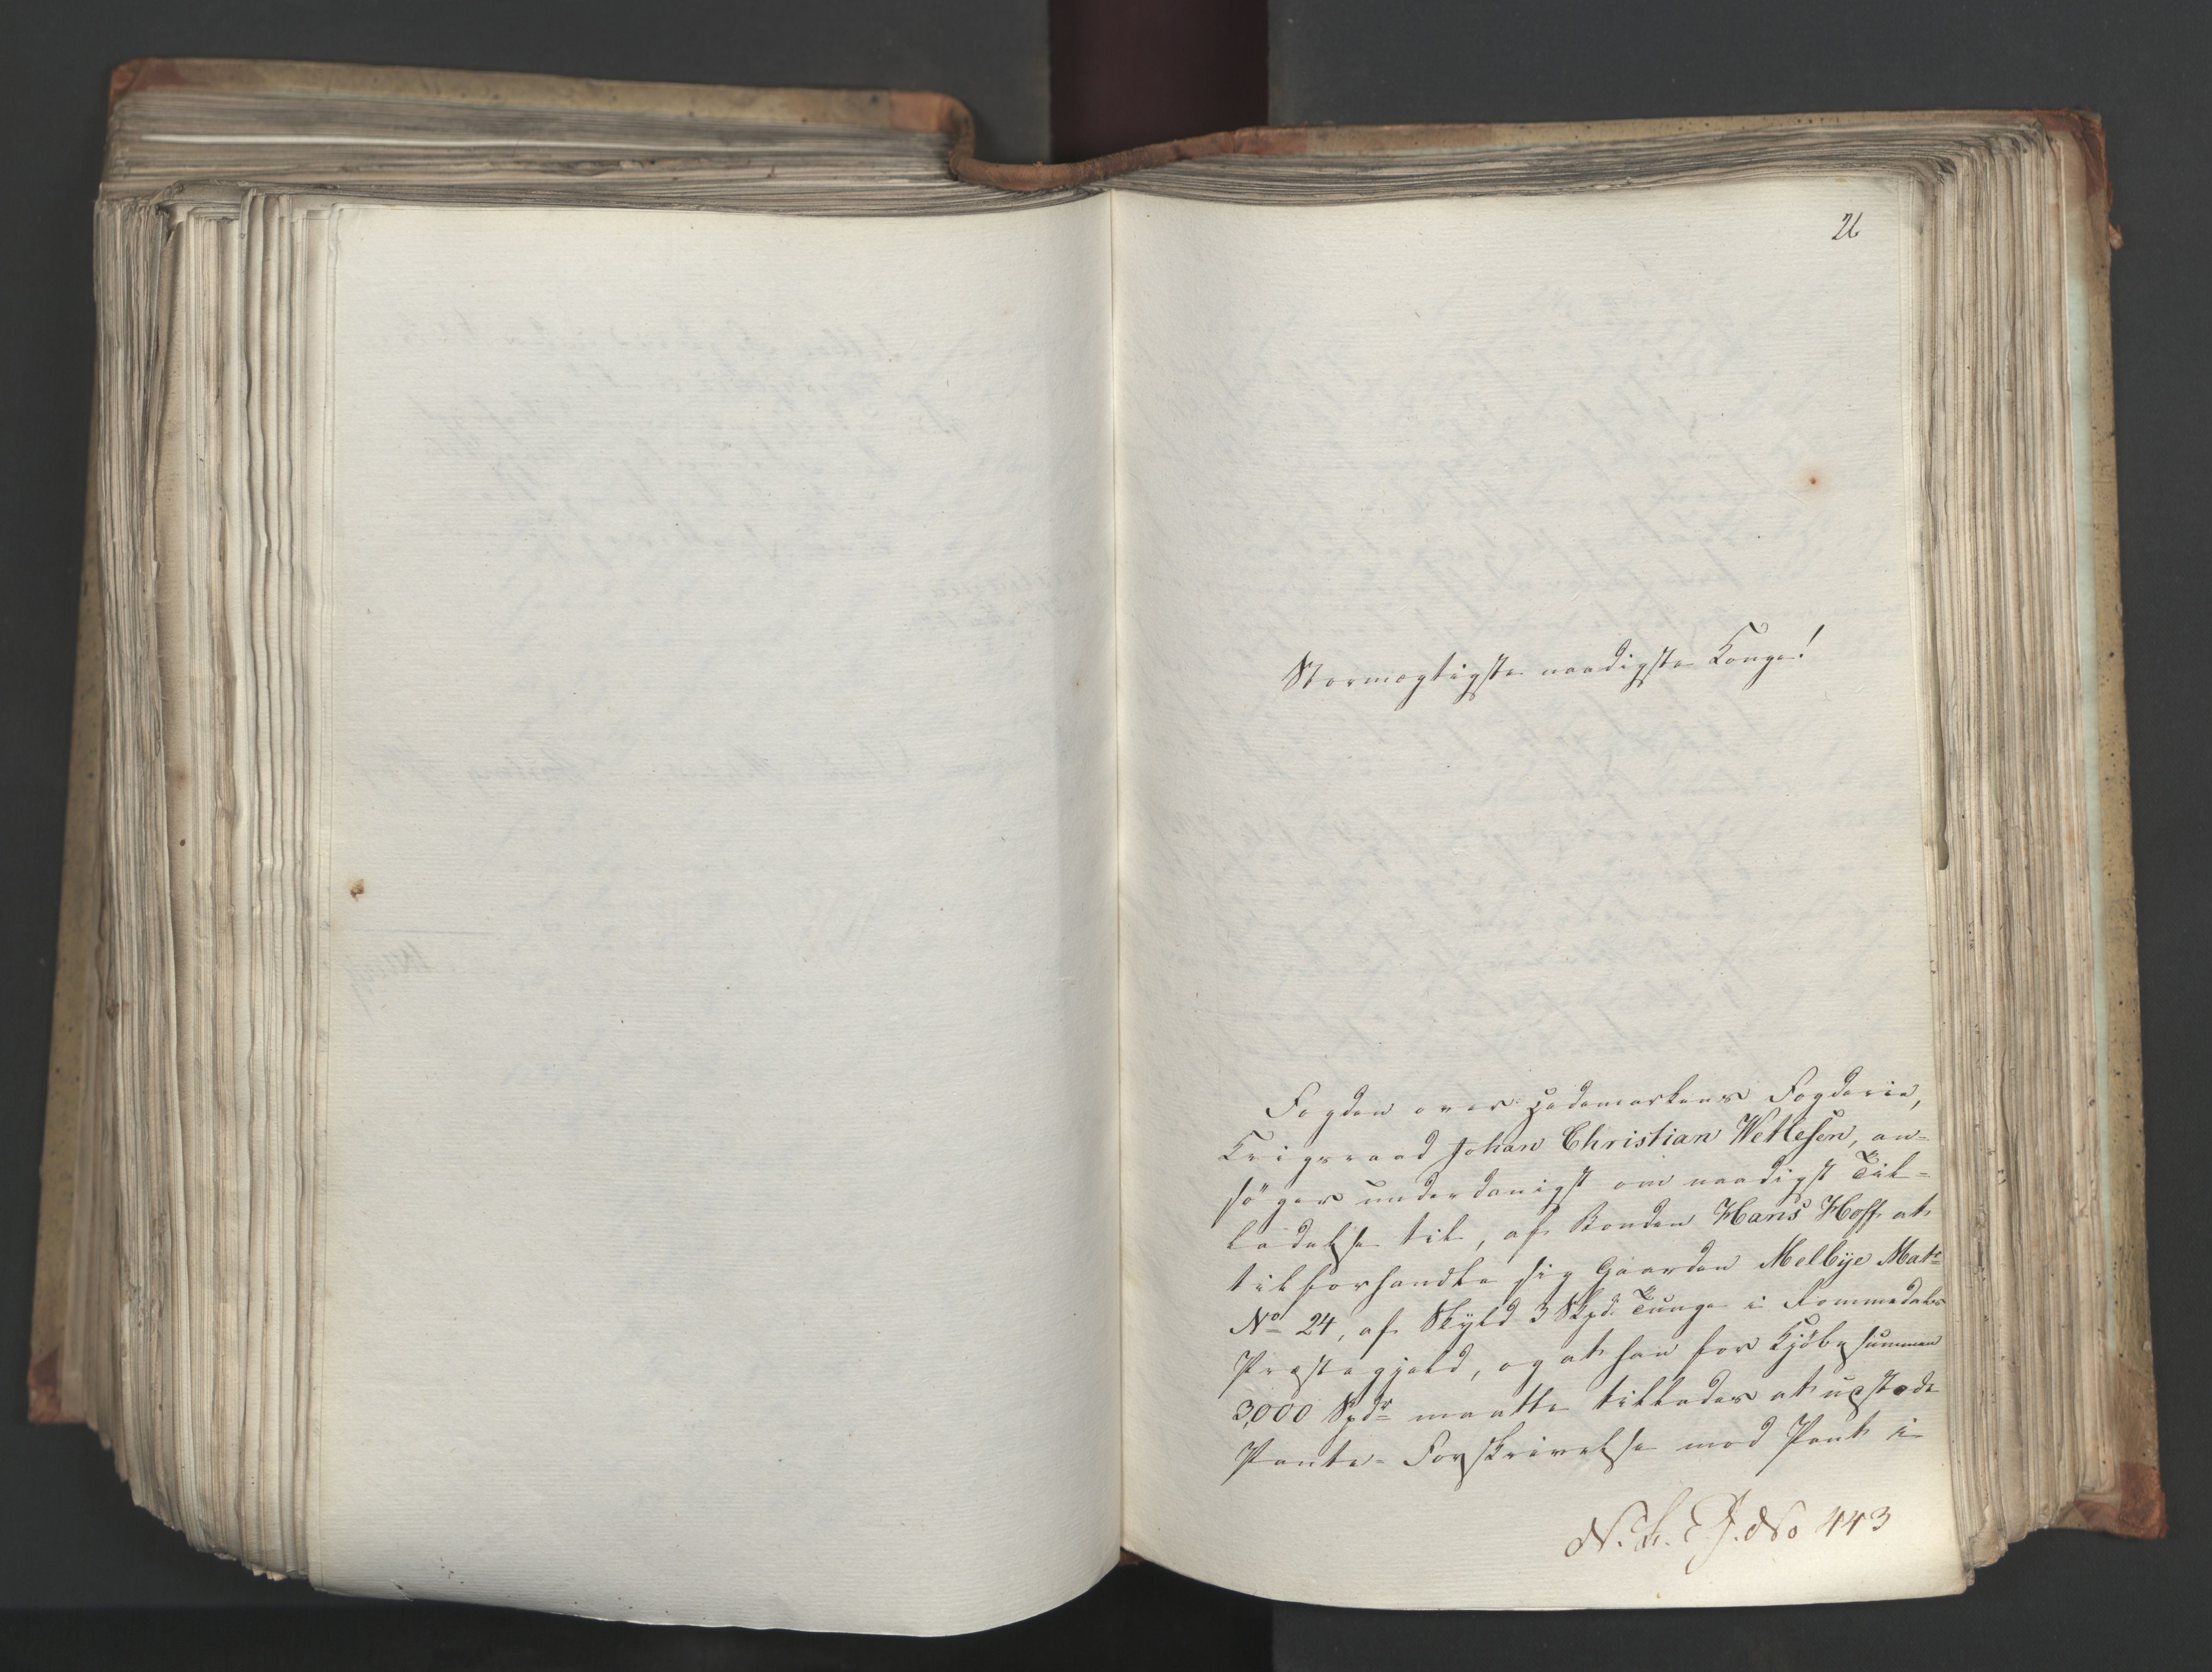 26
Stormægtigste naadigste Konge!
Fogden over Hedemarkens Fogderie,
Krigsraad Johan Christian Wetlesen, an-
søger underdanigst om naadigst Til-
ladelse til, af Bonden Hans Hoff at
tilforhandle sig Gaarden Melbye Mat:
No 24, af Skyld 3 Skpd. Tunge i Rommedals
Præstegjeld, og at han for Kjöbesummen
3,000 Spdr maatte tillades at udstæde
Pante-Forskrivelse med Pant i
J. No 443